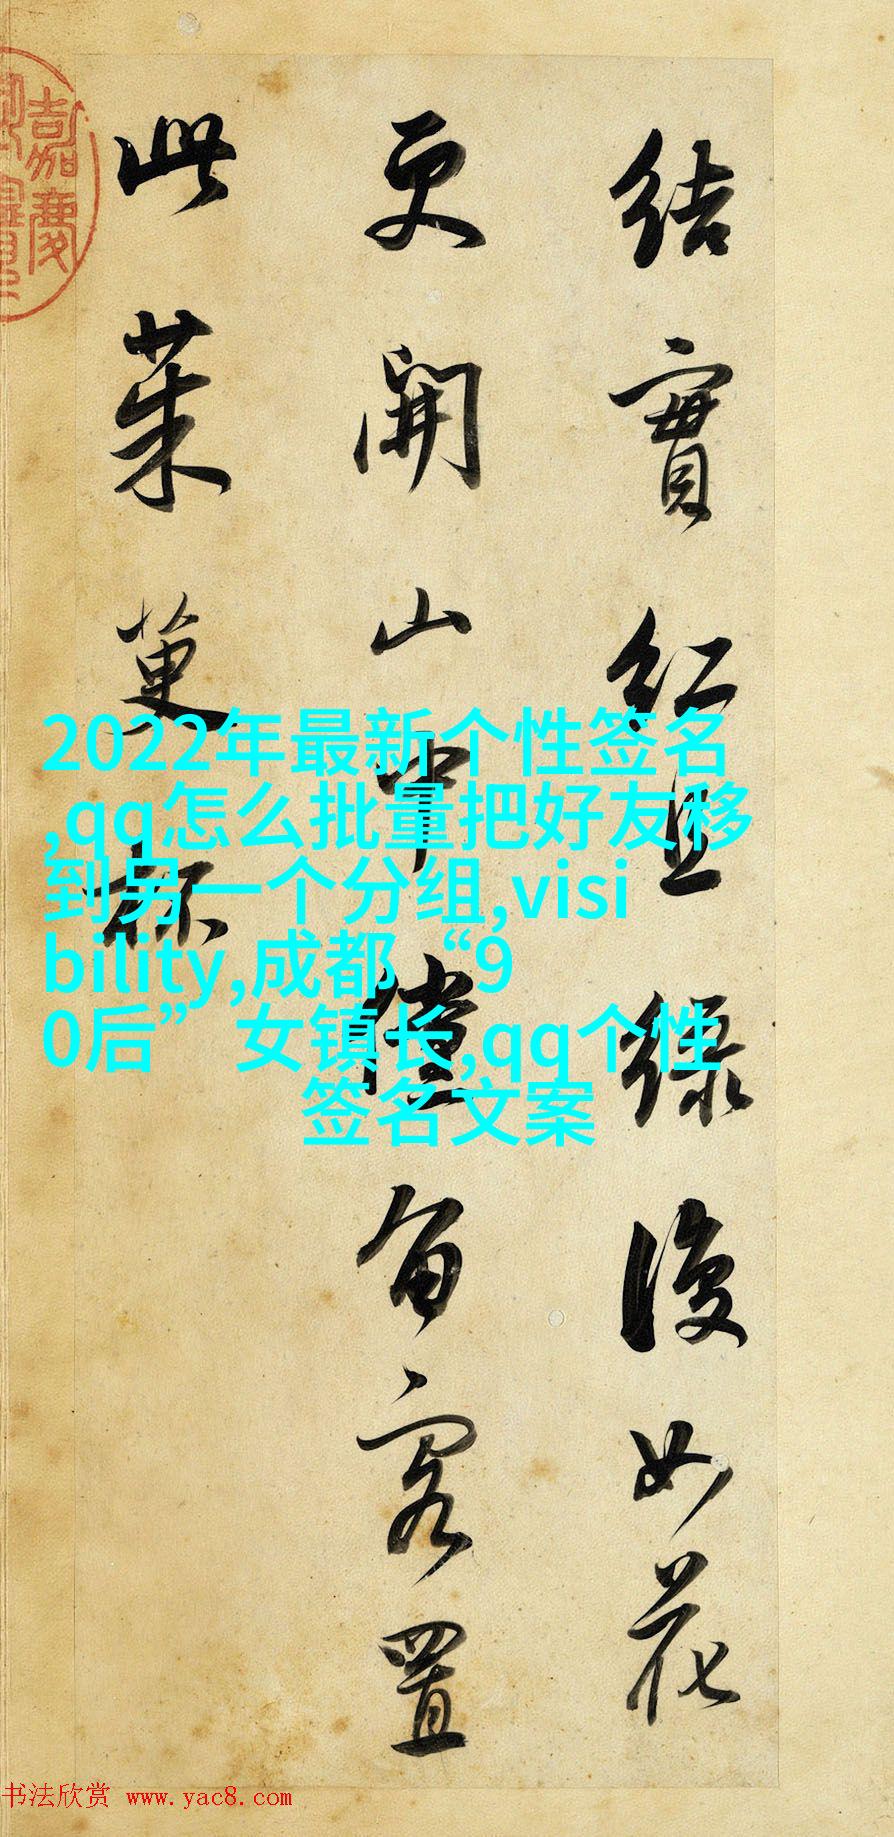 結實紅且綠復如花
更開山中儻留客置
此茱萸杯
嘉慶
2022年最新个性签名
,qq怎么批量把好友移
到另一个分组,visi
bility,成都“9
0后” 女镇长,qq个性
签名文案
书法欣赏 www.yac8.com